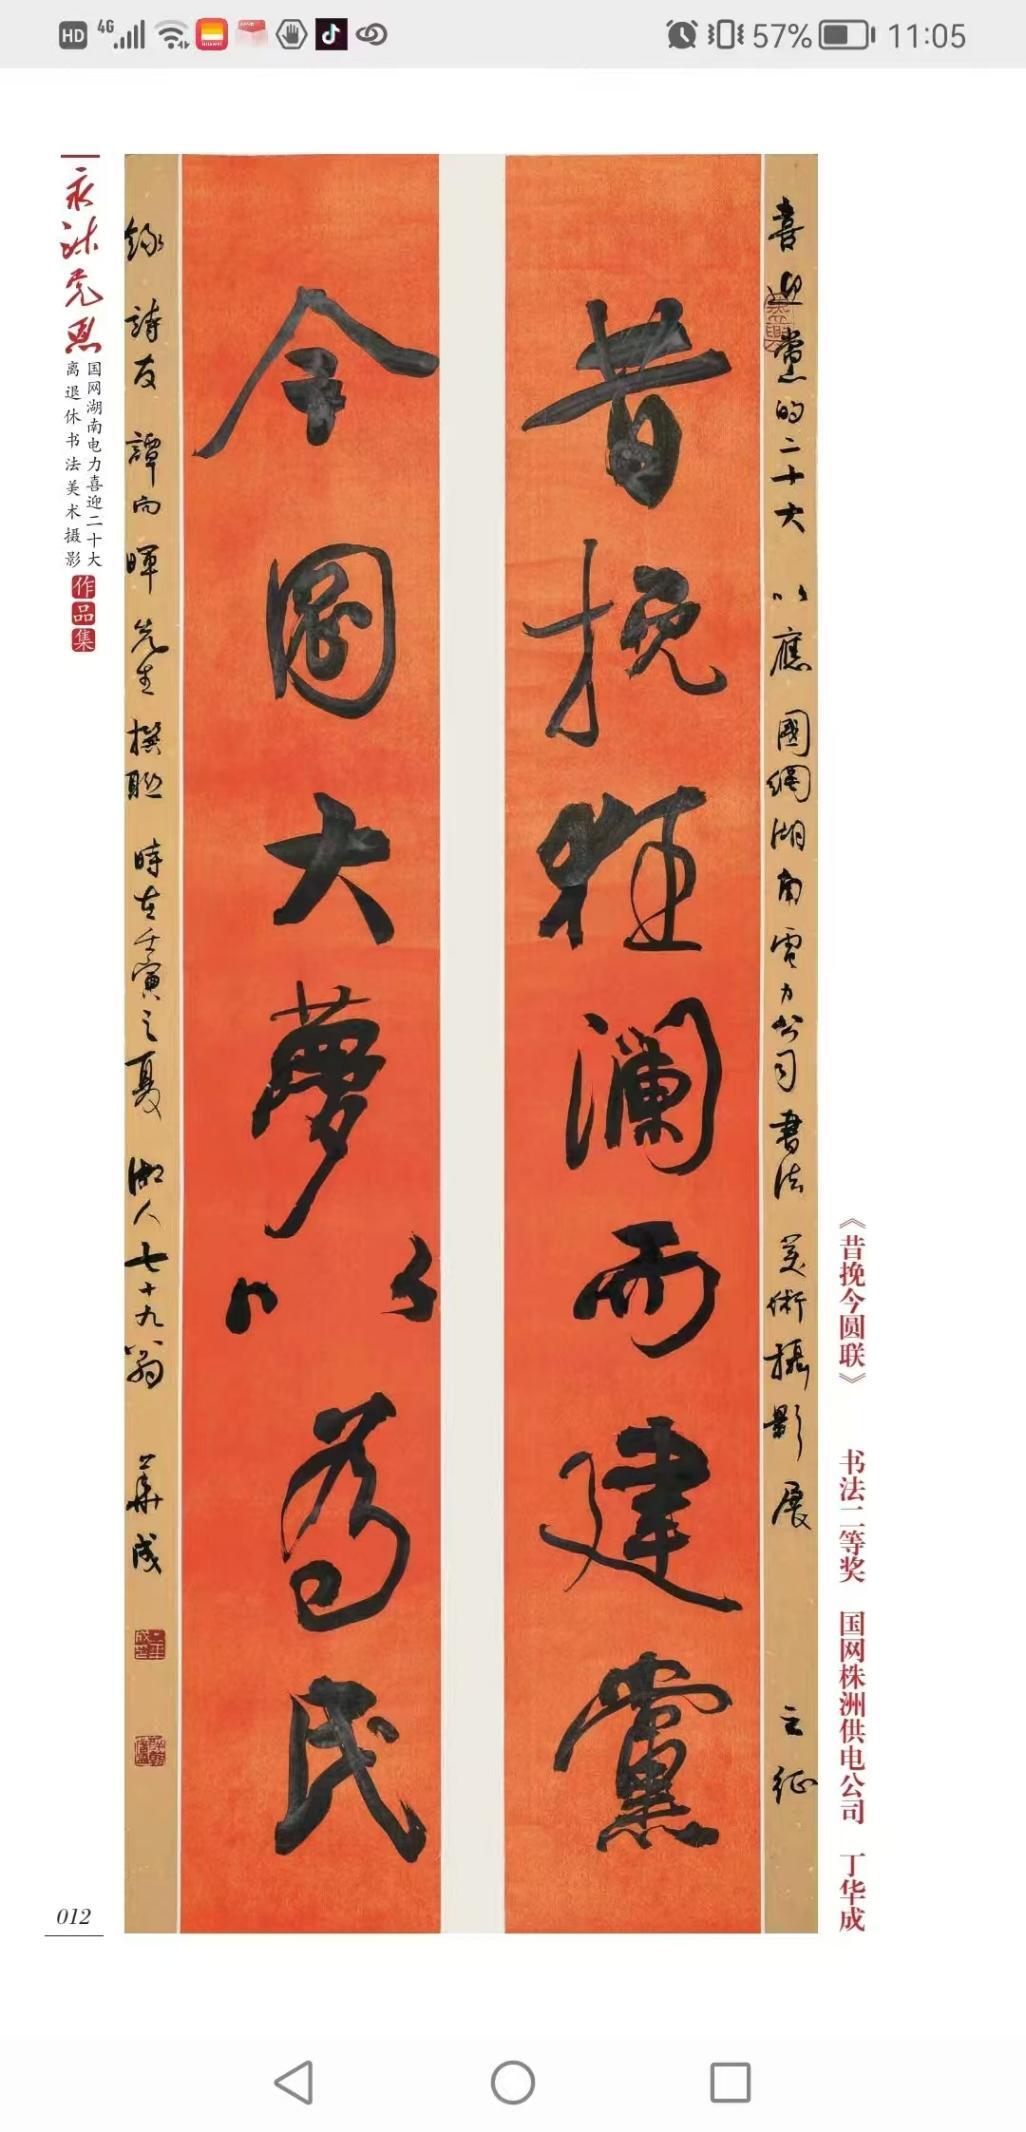 HD 4G 57% 11:05
喜迎黨的二十大 以應 國網湖南電力公司書法美術攝影展
昔挽狂瀾而建黨
今圓大夢以為民
錄詩友譚向暉先生撰聯 時在壬寅之夏 湘人七十九翁 華成
永沐党恩
国网湖南电力喜迎二十大
离退休书法美术摄影
作品集
《昔挽今圆联》 书法二等奖 国网株洲供电公司 丁华成
012